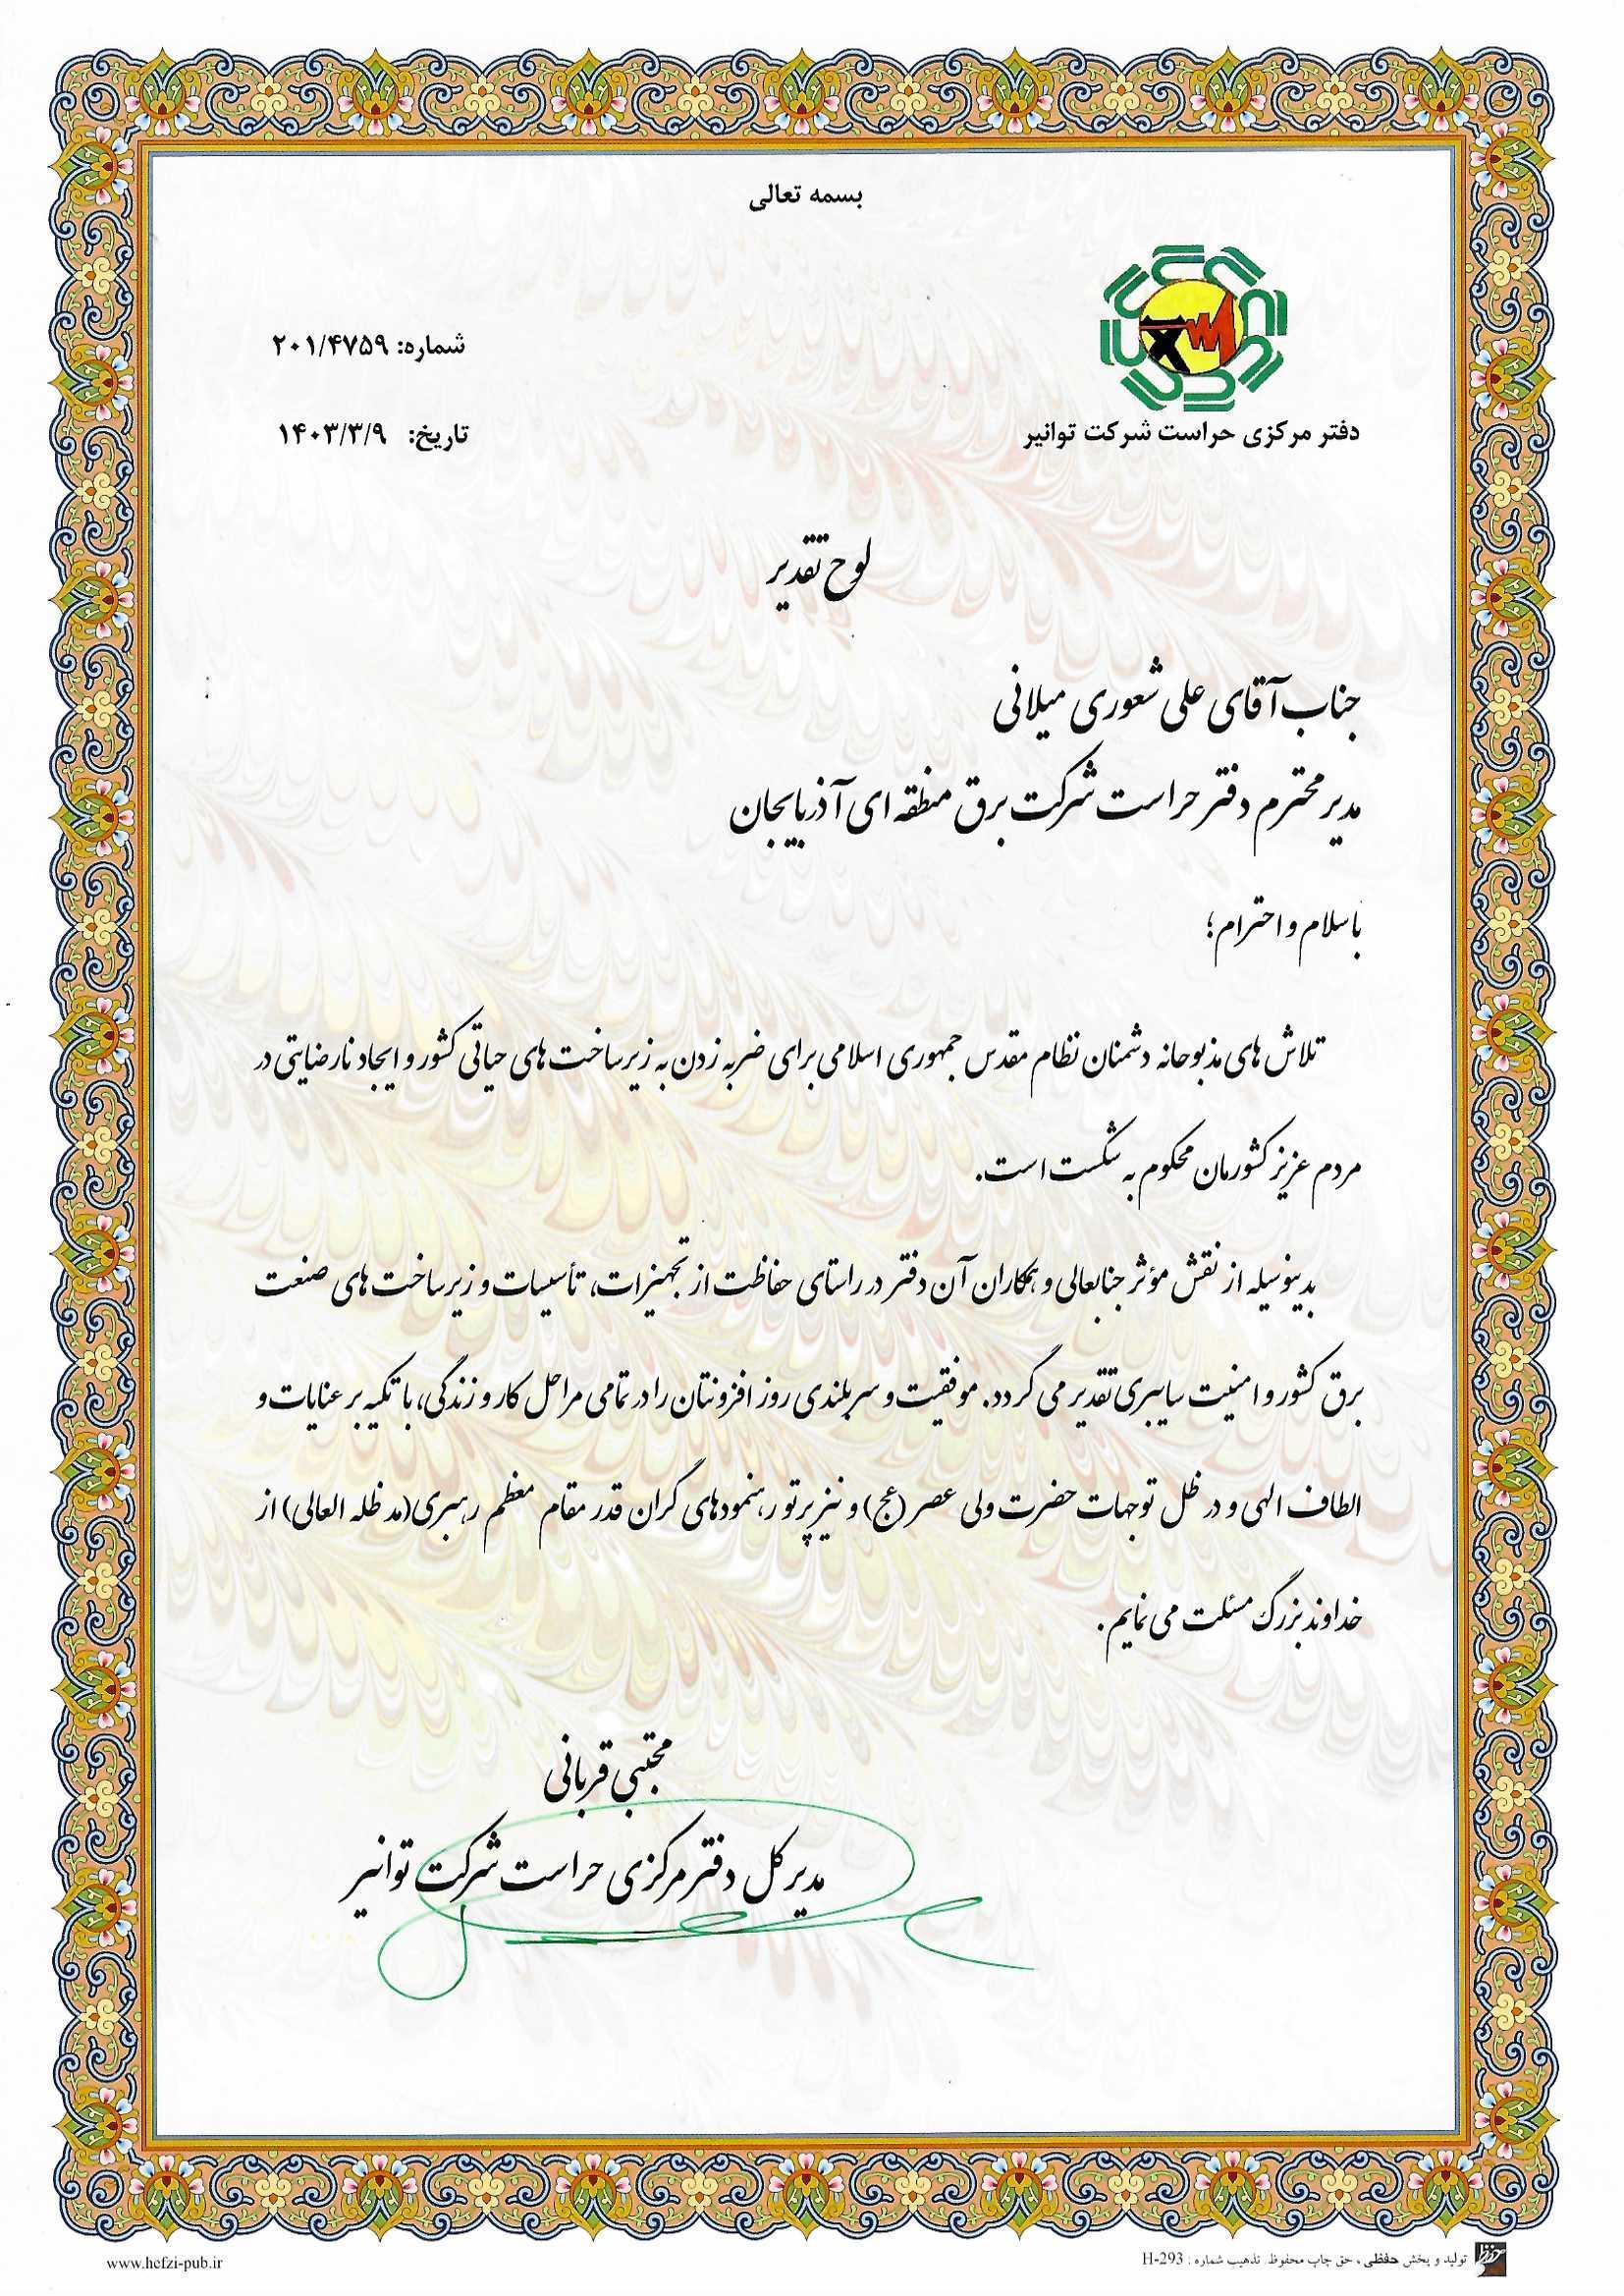 بسمه تعالی
دفتر مرکزی حراست شرکت توانیر
شماره: ۲۰۱/۴۷۵۹
تاریخ: ۱۴۰۳/۳/۹
لوح تقدیر
جناب آقای علی شعوری میلانی
مدیر محترم دفتر حراست شرکت برق منطقه ای آذربایجان
با سلام و احترام؛
تلاش های مذبوحانه دشمنان نظام مقدس جمهوری اسلامی برای ضربه زدن به زیرساخت های حیاتی کشور و ایجاد نارضایتی در
مردم عزیز کشورمان محکوم به شکست است.
بدینوسیله از نقش مؤثر جنابعالی و همکاران آن دفتر در راستای حفاظت از تجهیزات، تأسیسات و زیرساخت های صنعت
برق کشور و امنیت سایبری تقدیر می گردد. موفقیت و سربلندی روز افزونتان را در تمامی مراحل کار و زندگی، با تکیه بر عنایات و
الطاف الهی و در ظل توجهات حضرت ولی عصر (عج) و نیز پرتو رهنمودهای گران قدر مقام معظم رهبری (مد ظله العالی) از
خداوند بزرگ مسئلت می نمایم.
مجتبی قربانی
مدیر کل دفتر مرکزی حراست شرکت توانیر
تولید و پخش حفظی ، حق چاپ محفوظ. تذهیب شماره : H-293
www.hefzi-pub.ir